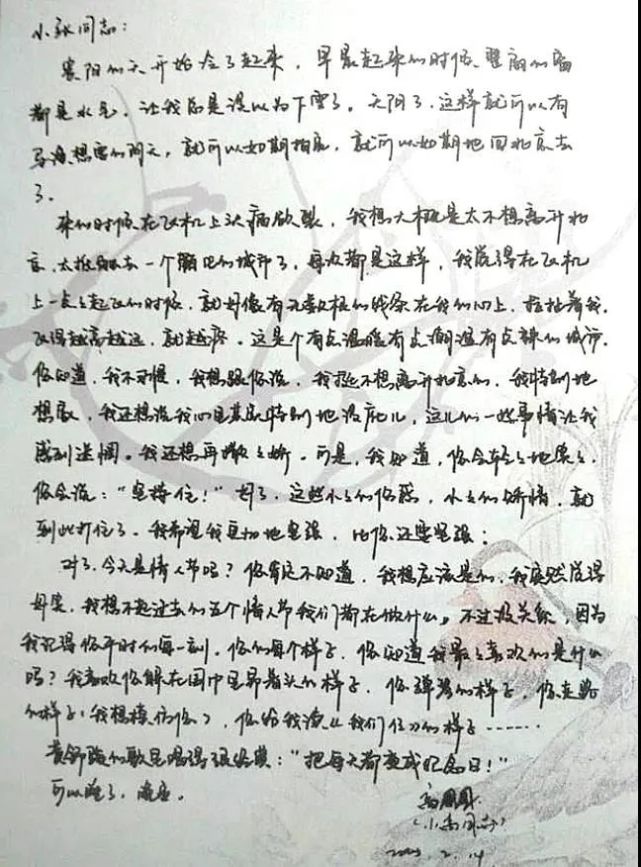 小张同志:
贵阳的天开始冷了起来,早晨起来的时候,里的窗
都是水气,让我总是误以为下雪了。天阴了,这样就可以有
想要的阴天,就可以如期拍戏,就可以如期地回北京去
了。
来的时候,在飞机上头痛欲裂,我想大概是太不想离开北
京,太去一个陌生的城市了,每次都是这样,我觉得在飞机
上一点点起飞的时候,就好像有无数根的线条在我的心上,拉扯着我,
飞得越高越远,就越疼。这是个有点温暖有点潮湿有点辣的城市,
你知道,我不习惯,我想跟你说,我挺不想离开北京的,我特别地
想家,我还想说我心里其实特别地没底儿,这儿的一些事情让我
感到迷惘。我还想再撒点娇。可是,我知道,你会轻轻地笑笑,
你会说:“坚持住!”对了,这些小小的伤感,小小的矫情,就
到此打住了。我希望我更加地坚强,比你还要坚强;
对了,今天是情人节吗?你肯定不知道,我想应该是的,我突然觉得
好笑,我想不起过去的五个情人节我们都在做什么。不过没关系,因为
我记得你平时的每一刻,你的每个样子,你知道我最最喜欢的是什么
吗?我喜欢你躲在围巾里昂着头的样子,你弹琴的样子,你走路
的样子(我想模仿你),你给我读《我们仨》的样子……
黄舒骏的歌里唱得很好哦:“把每天都变成纪念日!”
可以睡了,晚安。
高圆圆
(小高同志)
2.14